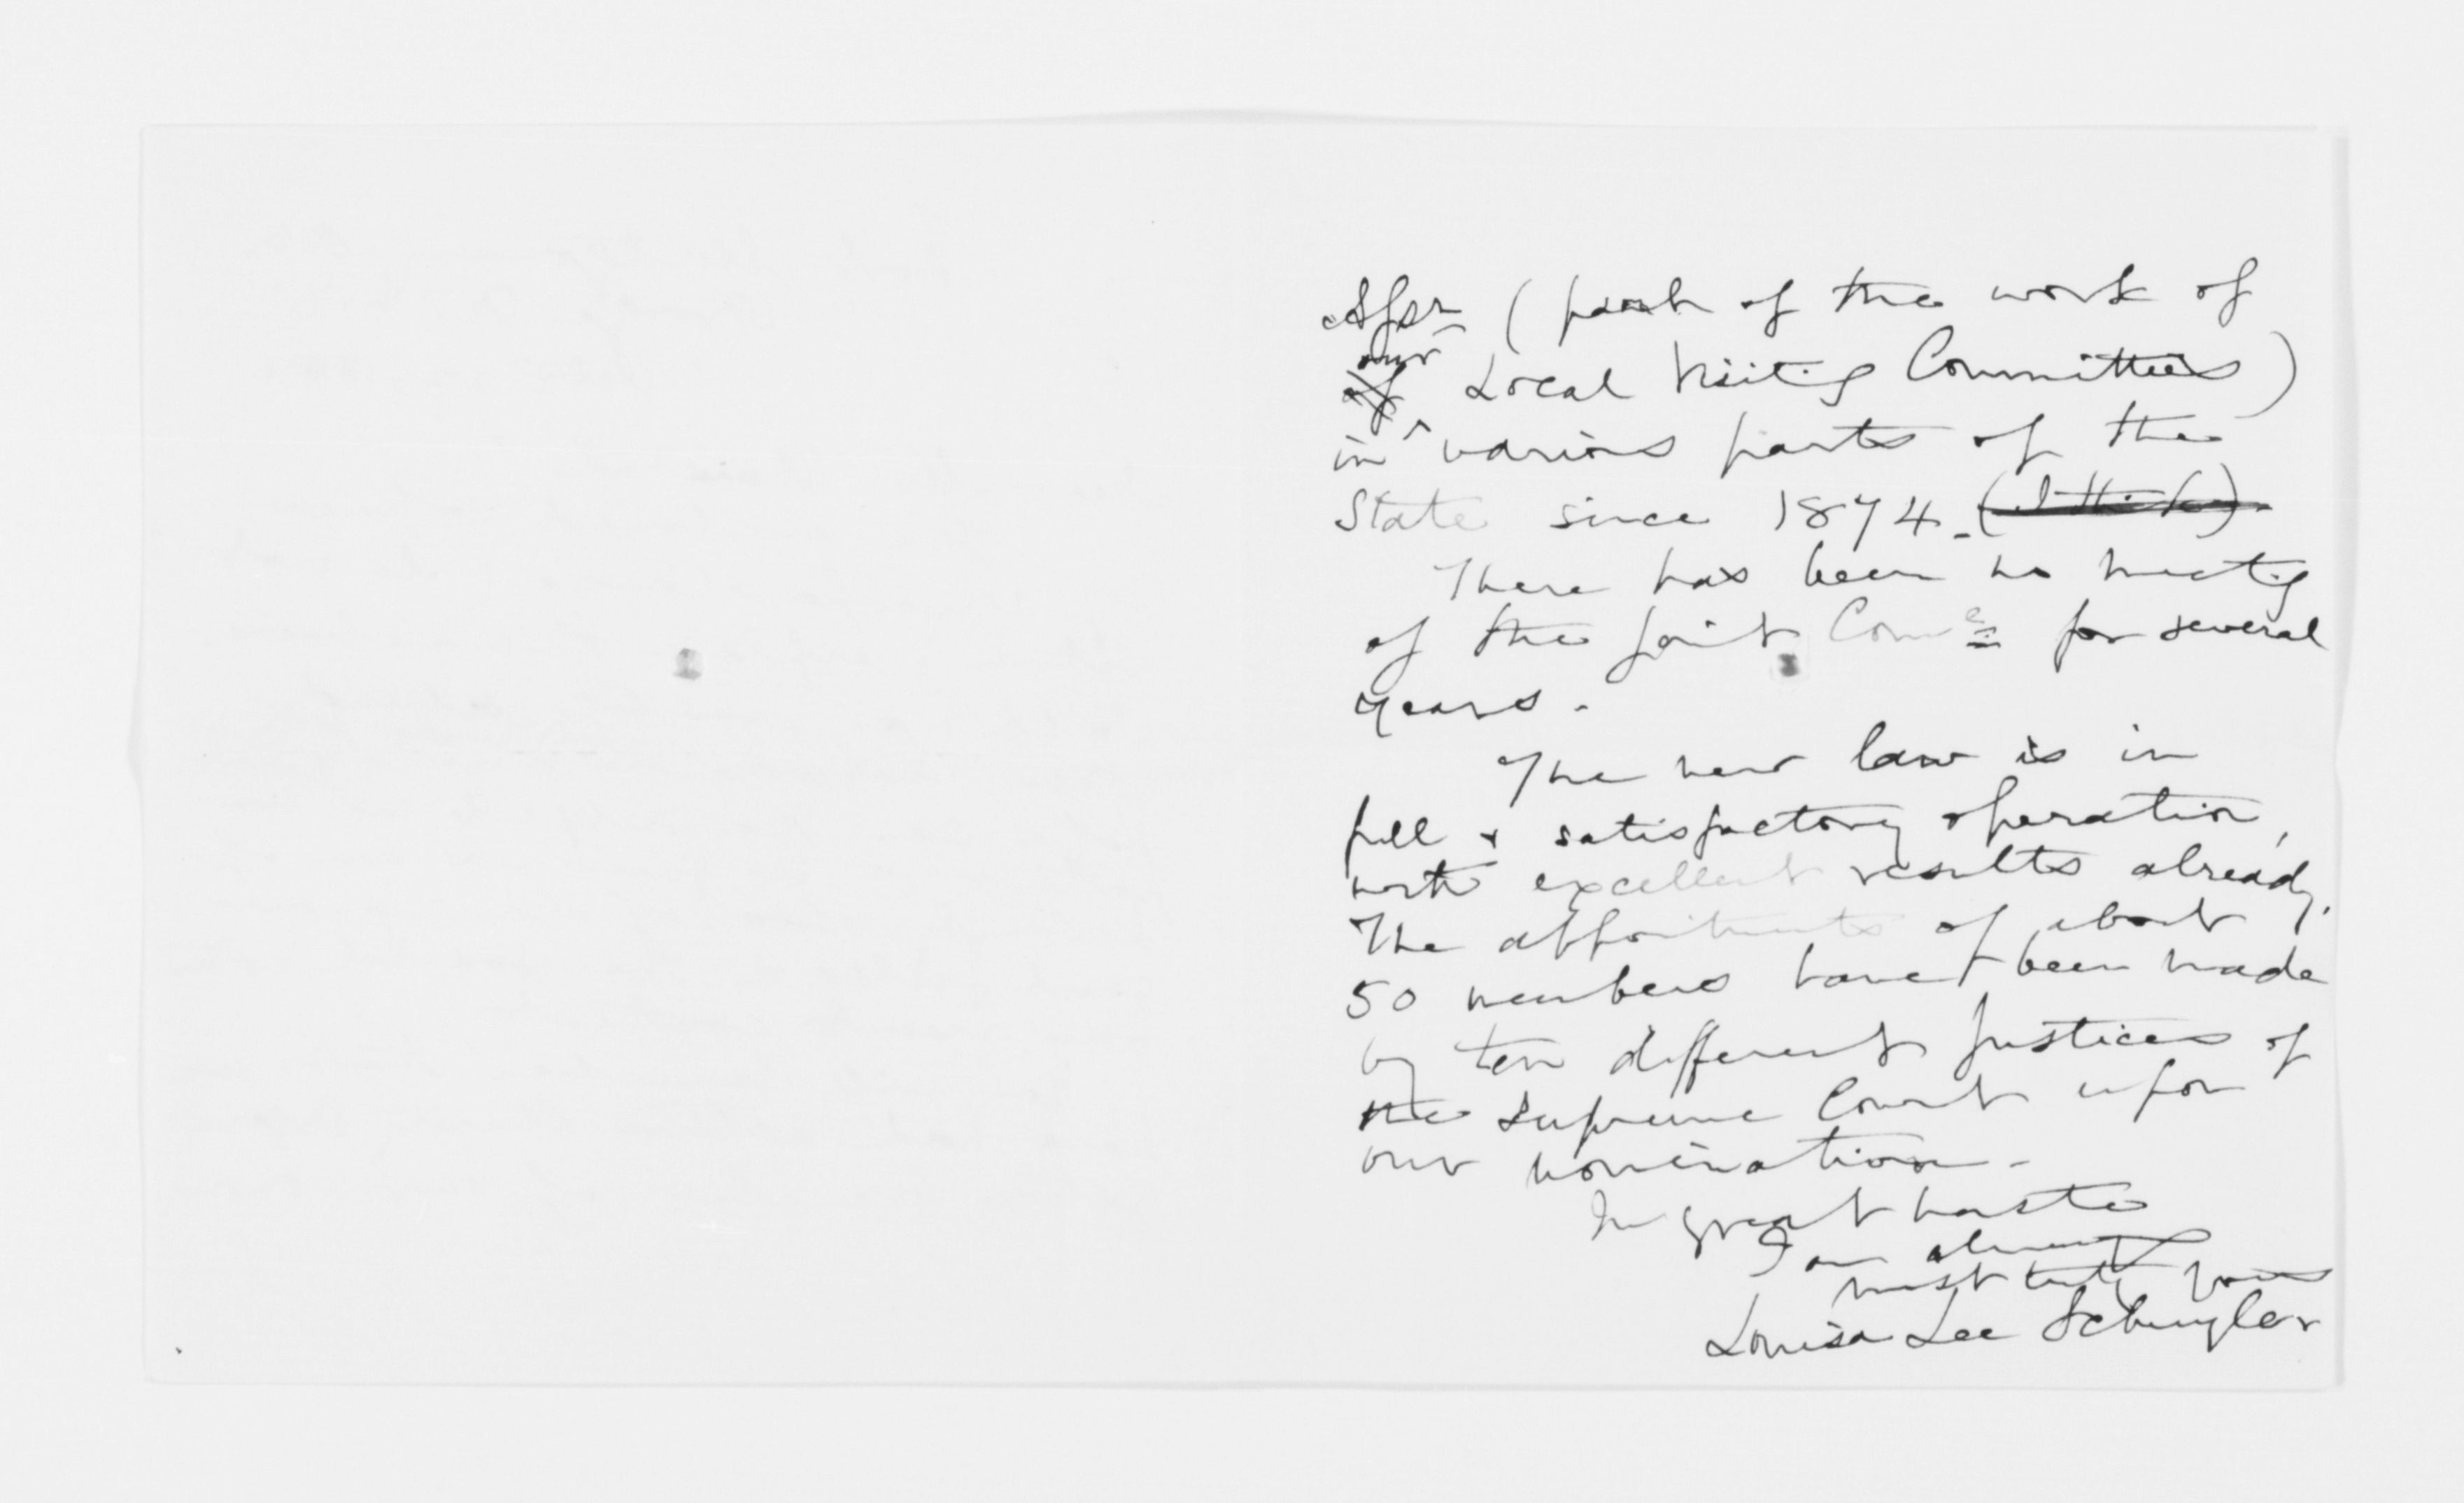 (part of the work of
our
of Local Visiting Committees)
in various parts of the
State since 1874. (I think)
There has been no meeting
of the joint Com^e for several
years.
The new law is in
full & satisfactory operation,
with excellent results already.
The appointments of about
50 members have been made
by ten different Justices of
the Supreme Court upon
our nomination.
In great haste
I am always
most truly yours
Louisa Lee Schuyler